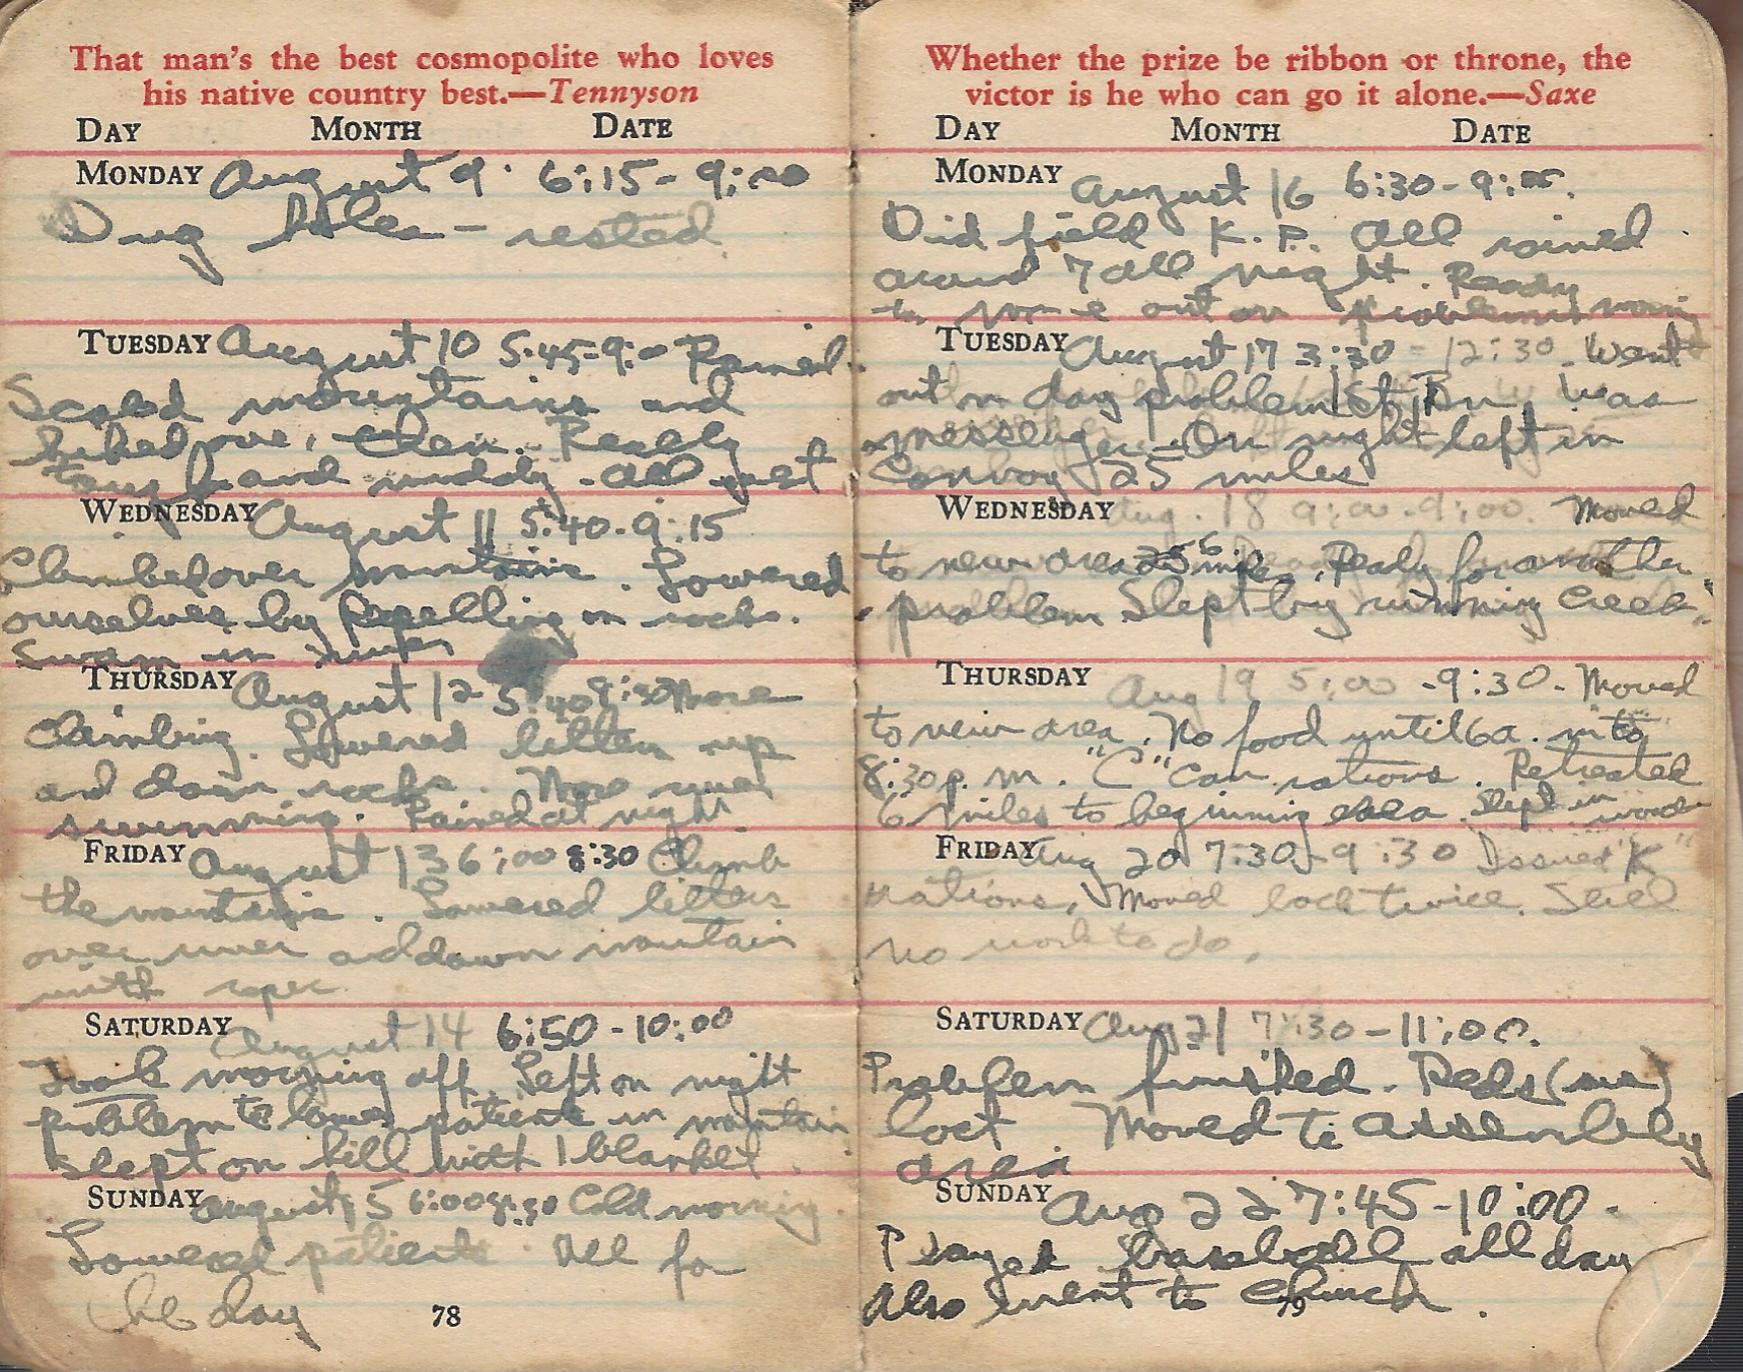 That man's the best cosmopolite who loves
his native country best.—Tennyson
DAY MONTH DATE
MONDAY August 9. 6:15-9:00
Dug holes - rested
TUESDAY August 10 5:45-9:00 Rained.
Scaled mountains and
hiked over them. Really
tough and muddy. All wet
WEDNESDAY August 11 5:40-9:15
Climbed over mountains. Lowered
ourselves by Repelling on rocks.
Swam in river
THURSDAY August 12 5:40 8:30 More
climbing. Lowered litters up
and down rocks. More river
swimming. Rained at night.
FRIDAY August 13 6:00 8:30 Climb
the mountains. Lowered litters
over river and down mountain
with ropes.
SATURDAY August 14 6:50-10:00
Took morning off. Left on night
problem to lower patients in mountain
Slept on hill with 1 blanket.
SUNDAY August 15 6:00 8:30 Cold morning.
Lowered patients. All for
the day
78
Whether the prize be ribbon or throne, the
victor is he who can go it alone.—Saxe
DAY MONTH DATE
MONDAY August 16 6:30-9:00.
Did field K.P. All rained
around 7 all night. Ready
to move out on problem
TUESDAY August 17 3:30-12:30. Went
out on day problem 1st Bn. Was
messenger. On night left in
Convoy 25 miles
WEDNESDAY Aug. 18 9:00-9:00. Moved
to new area miles. Ready for another
problem Slept by running creek.
THURSDAY Aug 19 5:00-9:30. Moved
to new area. No food until 6 a.m to
8:30 p.m. "C" Can rations. Retreated
6 miles to beginning area. Slept in woods
FRIDAY Aug 20 7:30-9:30 Issued "K"
rations, Moved back twice. Still
no work to do.
SATURDAY Aug 21 7:30-11:00.
Problem finished. Reds (me)
lost. Moved to assembly
area
SUNDAY Aug 22 7:45-10:00.
Played baseball all day
Also went to church.
79